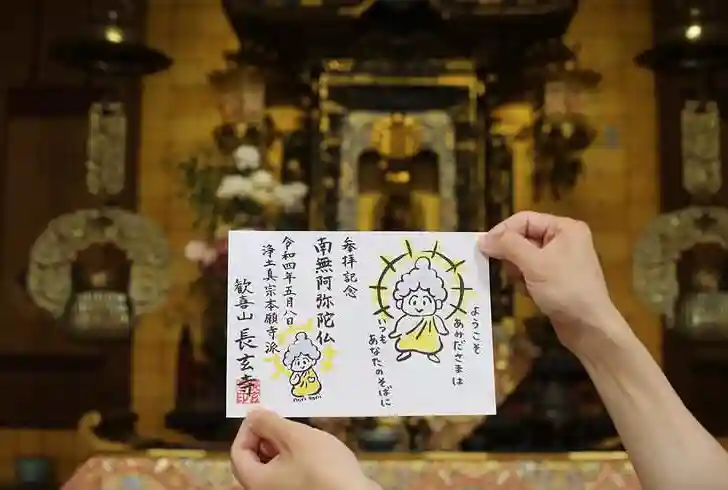 ようこそ
あみださまは
いつもあなたのそばに
参拝記念
南無阿弥陀仏
令和四年五月八日
浄土真宗本願寺派
歓喜山 長玄寺